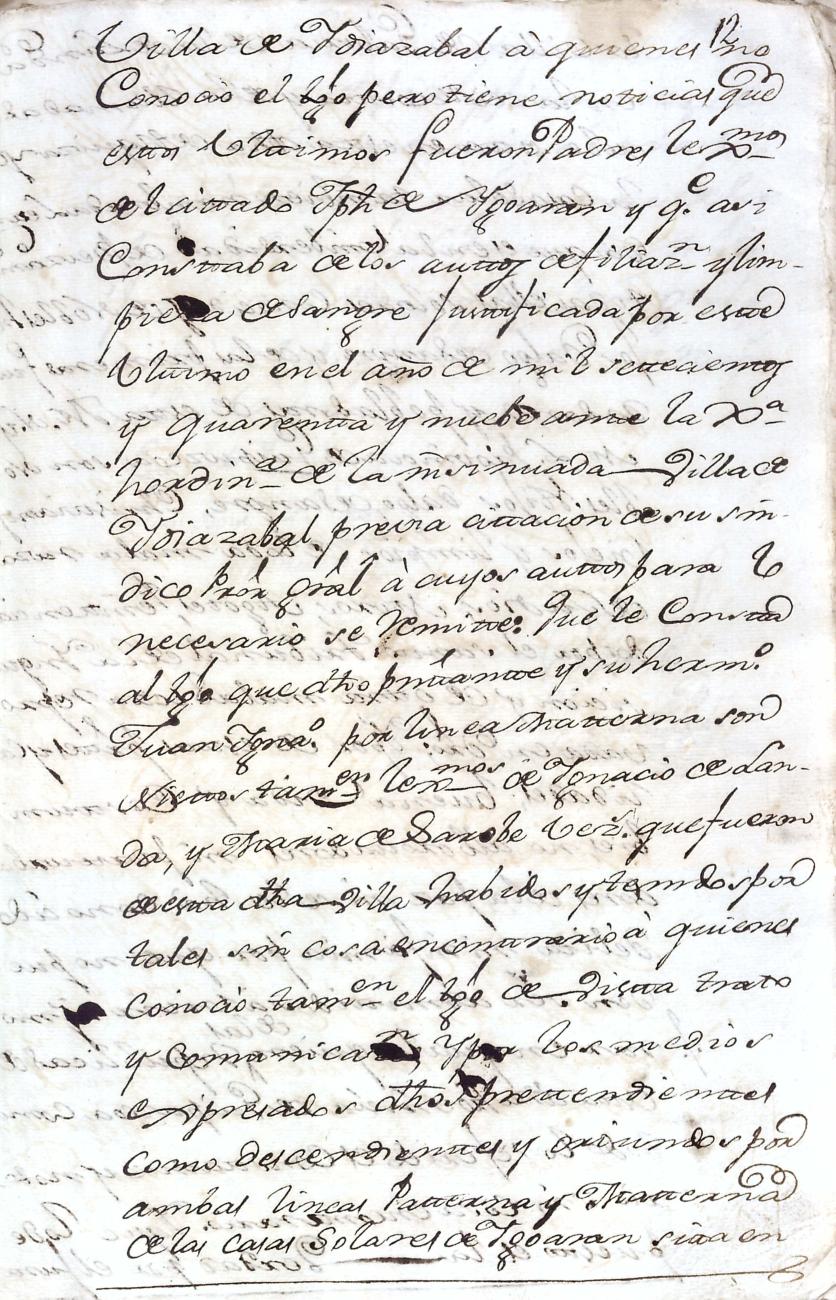 12
Villa de Ydiazabal à quienes no
Conocio el tgo pero tiene noticias que
estos Ultimos fueron Padres lexmos
del cittado Jph de Ygoaran y q.e asi
Consttaba de los auttos de filiazn y lim-
pieza de Sangre Justtificada por estte
Ulttimo en el año de mil settecienttos
y quarentta y nuebe antte la Xa
hordina de la ynsinuada Villa de
Ydiazabal, previa cittacion de su sin-
dico Pror gral à cuyos auttos para lo
necesario se remitte: Que le Constta
al tgo que dho prettante y su herm.o
Juan Ygna.o por linea Matterna son
Niettos tamen lexmos de Ygnacio de Lan-
da, y Maria de Sarobe Vez.s que fueron
de estta dha Villa habidos y tenidos por
tales sin cosa en conttrario à quienes
Conocio tamen el tgo de Vistta tratto
y Comunicazn Y por los medios
expresados dhos prettendienttes
como descendienttes y oriundos por
ambas lineas Patterna y Matterna
de las casas Solares de Ygoaran sita en